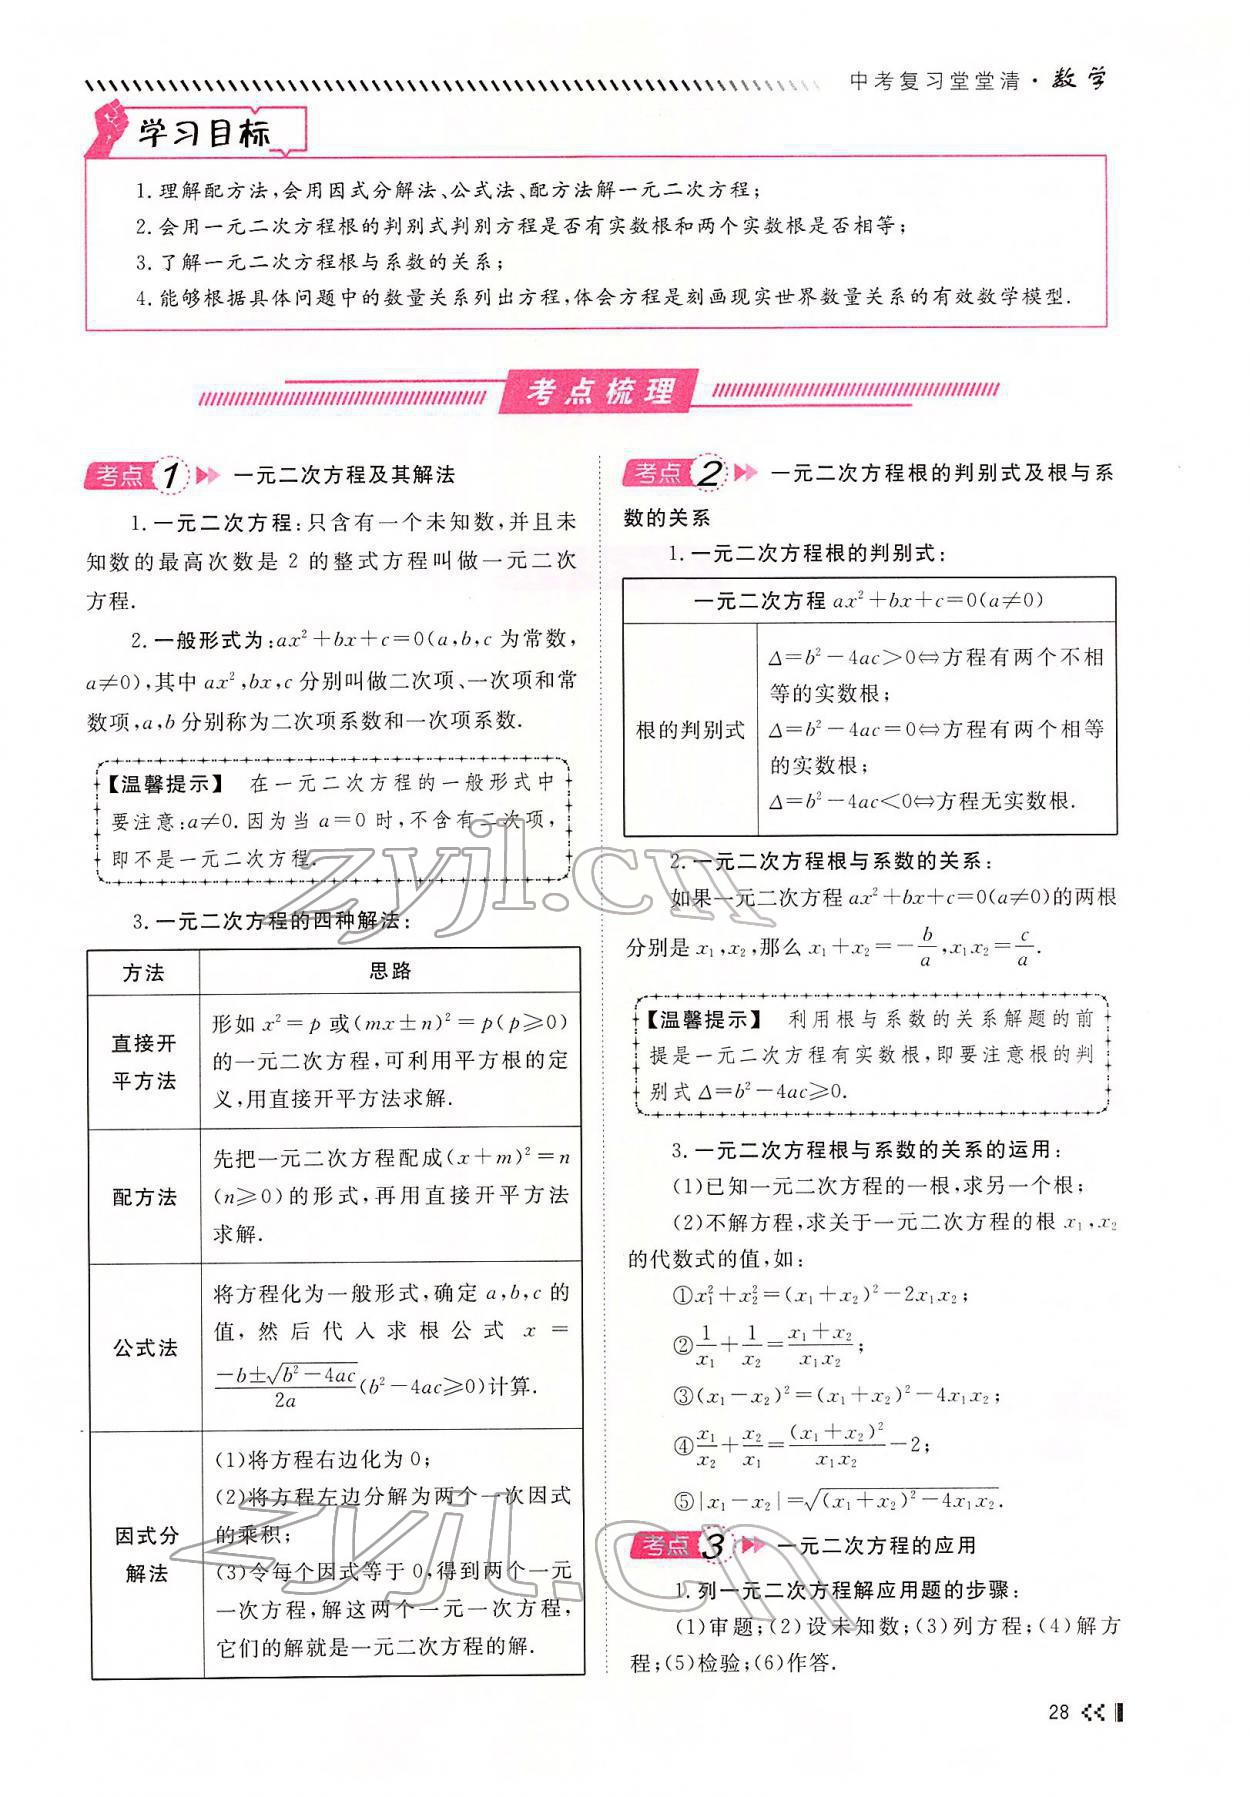 中考复习堂堂清·数学
学习目标
1.理解配方法,会用因式分解法、公式法、配方法解一元二次方程;
2.会用一元二次方程根的判别式判别方程是否有实数根和两个实数根是否相等;
3.了解一元二次方程根与系数的关系;
4.能够根据具体问题中的数量关系列出方程,体会方程是刻画现实世界数量关系的有效数学模型.
考点梳理
考点1 一元二次方程及其解法
1.一元二次方程:只含有一个未知数,并且未
知数的最高次数是 2 的整式方程叫做一元二次
方程.
2.一般形式为:ax²+bx+c=0(a,b,c 为常数,
a≠0),其中 ax²,bx,c 分别叫做二次项、一次项和常
数项,a,b 分别称为二次项系数和一次项系数.
【温馨提示】 在一元二次方程的一般形式中
要注意:a≠0.因为当 a=0 时,不含有二次项,
即不是一元二次方程.
3.一元二次方程的四种解法:
方法 思路
直接开
平方法
形如 x²=p 或(mx±n)²=p(p≥0)
的一元二次方程,可利用平方根的定
义,用直接开平方法求解.
配方法
先把一元二次方程配成(x+m)²=n
(n≥0)的形式,再用直接开平方法
求解.
公式法
将方程化为一般形式,确定 a,b,c 的
值,然后代入求根公式 x=
(-b±√(b²-4ac))/2a (b²-4ac≥0)计算.
因式分
解法
(1)将方程右边化为 0;
(2)将方程左边分解为两个一次因式
的乘积;
(3)令每个因式等于 0,得到两个一元
一次方程,解这两个一元一次方程,
它们的解就是一元二次方程的解.
考点2 一元二次方程根的判别式及根与系
数的关系
1.一元二次方程根的判别式:
一元二次方程 ax²+bx+c=0(a≠0)
根的判别式
Δ=b²-4ac>0⇔方程有两个不相
等的实数根;
Δ=b²-4ac=0⇔方程有两个相等
的实数根;
Δ=b²-4ac<0⇔方程无实数根.
2.一元二次方程根与系数的关系:
如果一元二次方程 ax²+bx+c=0(a≠0)的两根
分别是 x₁,x₂,那么 x₁+x₂=-b/a,x₁x₂=c/a.
【温馨提示】 利用根与系数的关系解题的前
提是一元二次方程有实数根,即要注意根的判
别式 Δ=b²-4ac≥0.
3.一元二次方程根与系数的关系的运用:
(1)已知一元二次方程的一根,求另一个根;
(2)不解方程,求关于一元二次方程的根 x₁,x₂
的代数式的值,如:
①x₁²+x₂²=(x₁+x₂)²-2x₁x₂;
②1/x₁+1/x₂=(x₁+x₂)/x₁x₂;
③(x₁-x₂)²=(x₁+x₂)²-4x₁x₂;
④x₁/x₂+x₂/x₁=(x₁+x₂)²/x₁x₂-2;
⑤|x₁-x₂|=√((x₁+x₂)²-4x₁x₂).
考点3 一元二次方程的应用
1.列一元二次方程解应用题的步骤:
(1)审题;(2)设未知数;(3)列方程;(4)解方
程;(5)检验;(6)作答.
28
zyjl.cn
zyjl.cn